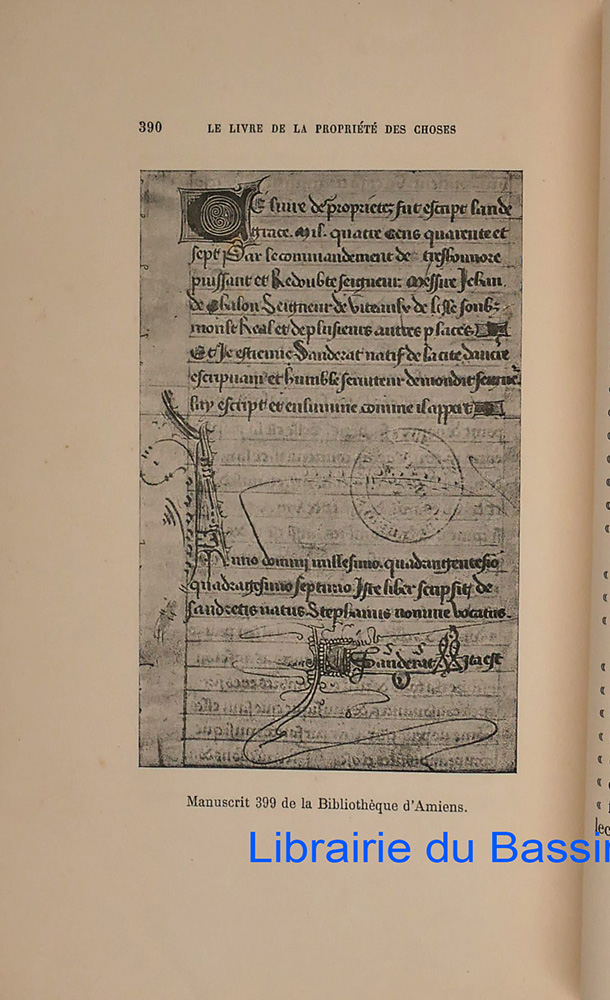 390 LE LIVRE DE LA PROPRIÉTÉ DES CHOSES
Ce livre de proprietez fut escript lan de
grace. Mil. quatre Cens quarente et
sept Par le commandement de tresbonnore
puissant et Redoubte seigneur. Messire Jehan.
de Chalon Seigneur de Viteaulx de lisle soubz
monst Real et de plusieurs autres places
Et Je estienne Sanderat natif de la cite daucre
escripuain et humble seruiteur de mondit seigneur
lay escript et enlumine comme il appert
Anno domini millesimo. quadringentesio
quadragesimo septimo. Iste liber scripsit de
sandretis natus Stephanus nomine vocatus.
Sanderat Ita est
Manuscrit 399 de la Bibliothèque d'Amiens.
Librairie du Bassin